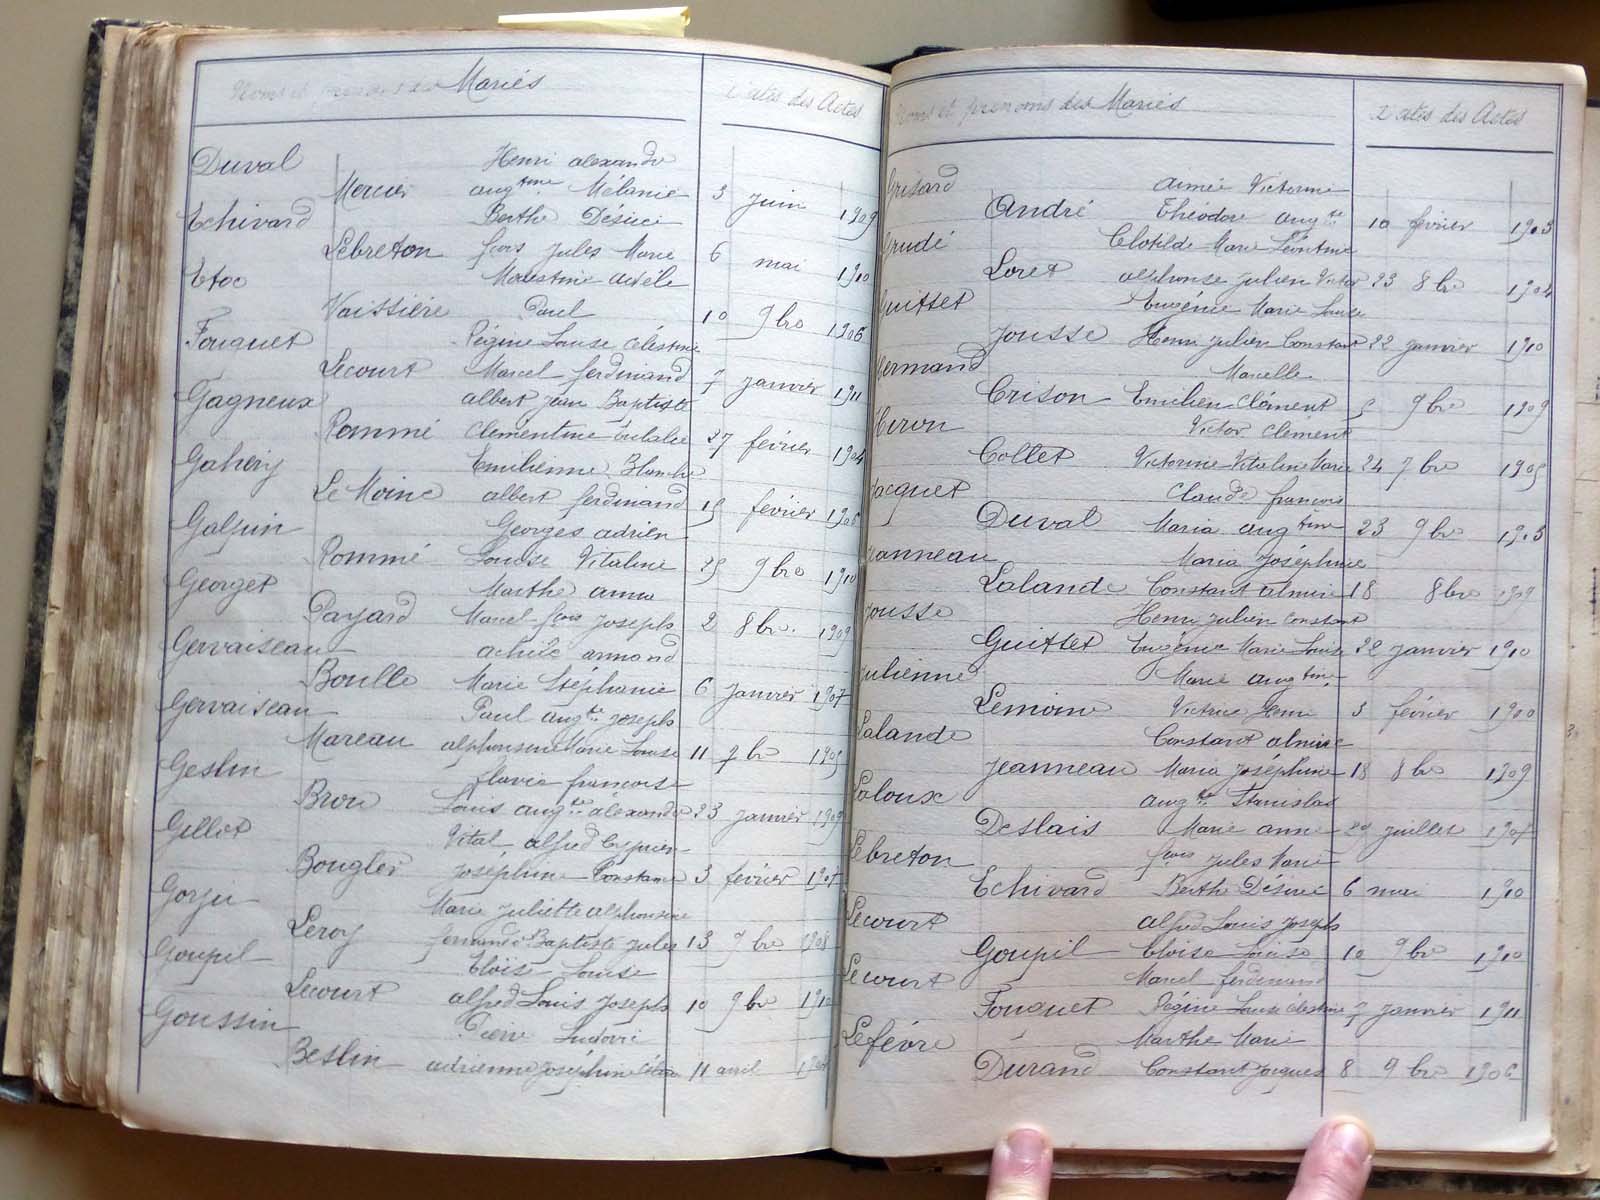 Noms et prénoms des Mariés Dates des Actes
Duval Henri alexandre
Mercier aug^tine Mélanie 3 juin 1909
Echivard Berthe Désirée
Lebreton f^cois Jules Marie 6 mai 1910
Etoc adèle
Vaissière Paul 10 9bre 1906
Fouquet Régine Louise Célestine
Lecourt Marcel ferdinand 7 janvier 1911
Gagneux albert jean Baptiste
Pommé Clémentine Eulalie 27 février 1904
Gahéry Emilienne Blanche
Le Moine albert ferdinand 15 février
Galpin Georges adrien
Pommé Louise Vitaline 25 9bre 1910
Georget Marthe anna
Payard Marcel f^cois Joseph 2 8bre. 1909
Gervaiseau achile armand
Boulle Marie Stéphanie 6 janvier 1907
Gervaiseau Paul aug^te Joseph
Mareau alphonsine Marie Louise 11 7bre 1905
Geslin flavie françoise
Brou Louis aug^te alexandre 23 janvier
Gillot Vital alfred Cyprien
Bougler Joséphine Constance 3 février 1907
Gorju Marie Juliette alphonsine
Leroy Baptiste Jules 13 9bre 1908
Goupil Eloïse Louise
Lecourt alfred Louis Joseph 10 9bre 1910
Goussin Pierre Ludovic
Beslin adrienne Joséphine 11 avril
Noms et prénoms des Mariés Dates des Actes
Grisard aimée Victorine
André Théodore aug^te 10 février 1903
Grudé Clotilde Marie Léontine
Loret alphonse julien Victor 23 8bre 1904
Guittet Eugénie Marie Louise
Jousse Henri Julien Constant 22 janvier 1910
Hermand Marcelle
Crison Emilien Clément 5 9bre 1909
Heron Victor Clément
Collet Victorine Vitaline Marie 24 7bre 1905
Jacquet Claude françois
Duval Maria aug^tine 23 9bre 1903
Jeanneau Maria Joséphine
Lalande Constant almire 18 8bre 1909
Jousse Henri Julien Constant
Guittet Eugénie Marie Louise 22 janvier 1910
Julienne Marie aug^tine
Lemoine Victrice Henri 3 février 1900
Lalande Constant almire
Jeanneau Maria Joséphine 18 8bre 1909
Laloux aug^te Stanislas
Deslais Marie anne 29 juillet 1907
Lebreton f^cois Jules Marie
Echivard Berthe Désirée 6 mai 1910
Lecourt alfred Louis Joseph
Goupil Eloïse Louise 10 9bre 1910
Lecourt Marcel ferdinand
Fouquet Régine Louise Célestine 7 janvier 1911
Lefèvre Marthe Marie
Durand Constant Jacques 8 9bre 1906